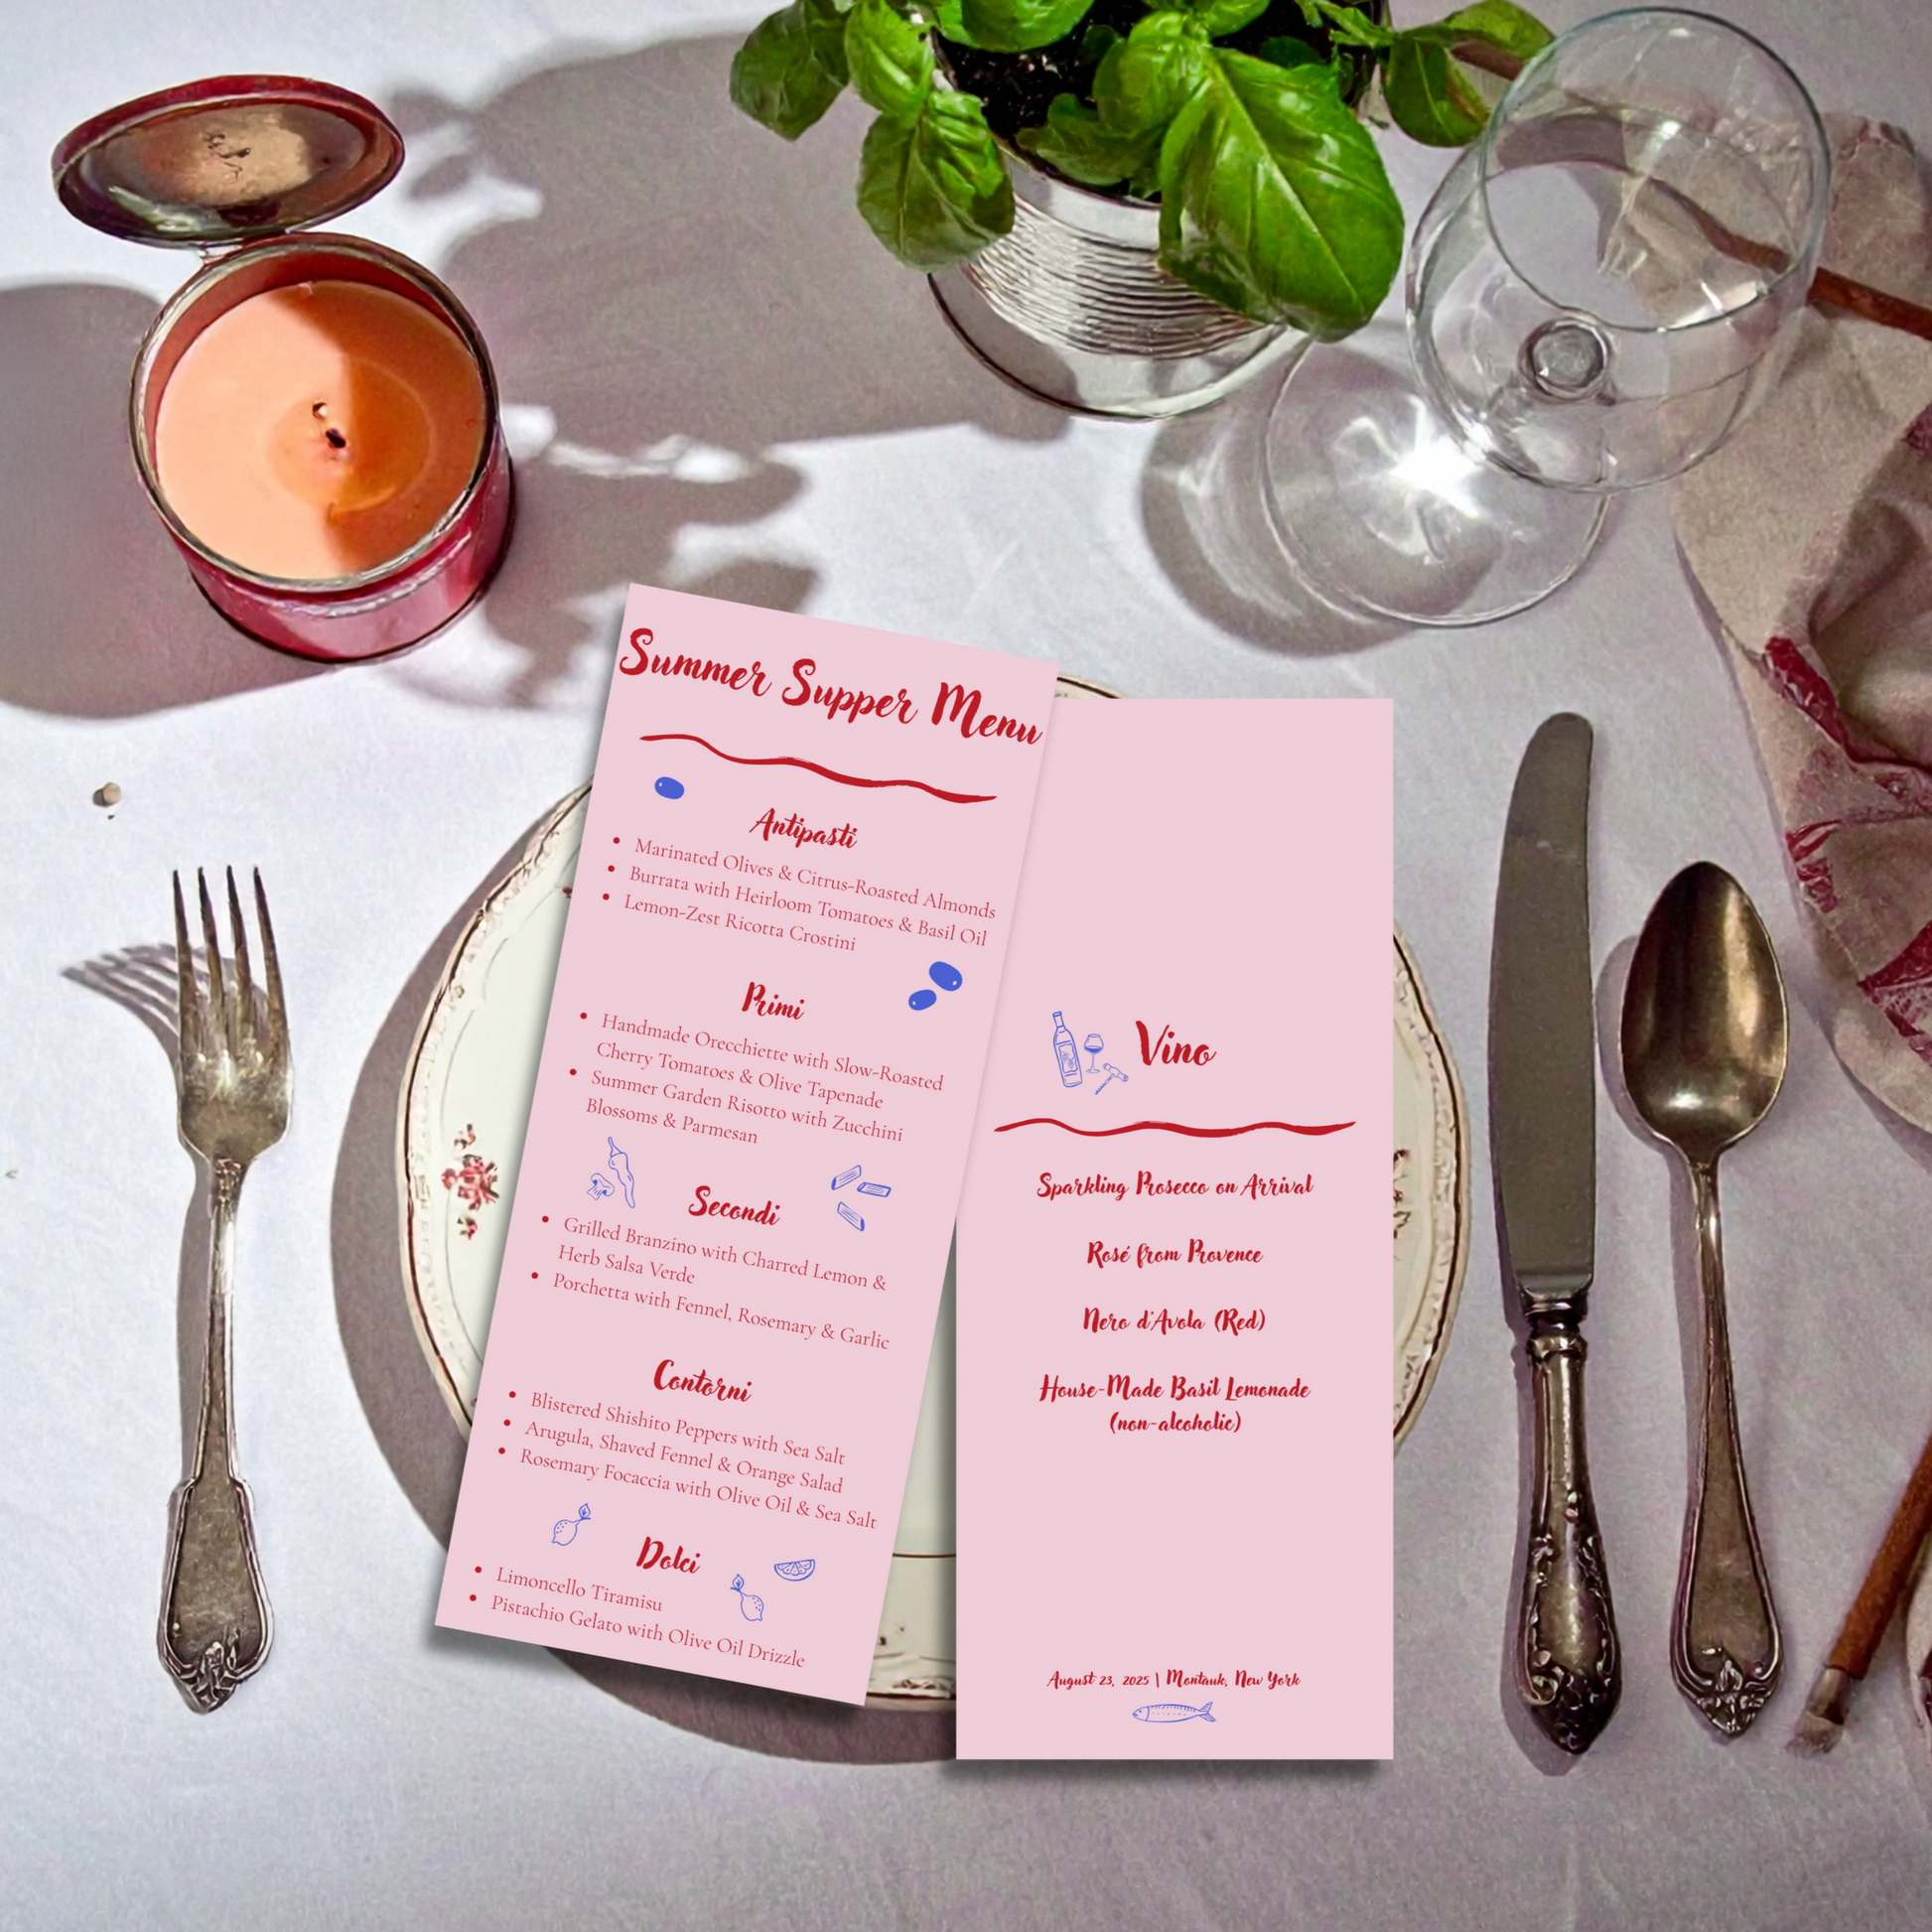 Summer Supper Menu
Antipasti
• Marinated Olives & Citrus-Roasted Almonds
• Burrata with Heirloom Tomatoes & Basil Oil
• Lemon-Zest Ricotta Crostini
Primi
• Handmade Orecchiette with Slow-Roasted
Cherry Tomatoes & Olive Tapenade
• Summer Garden Risotto with Zucchini
Blossoms & Parmesan
Secondi
• Grilled Branzino with Charred Lemon &
Herb Salsa Verde
• Porchetta with Fennel, Rosemary & Garlic
Contorni
• Blistered Shishito Peppers with Sea Salt
• Arugula, Shaved Fennel & Orange Salad
• Rosemary Focaccia with Olive Oil & Sea Salt
Dolci
• Limoncello Tiramisu
• Pistachio Gelato with Olive Oil Drizzle
Vino
Sparkling Prosecco on Arrival
Rosé from Provence
Nero d'Avola (Red)
House-Made Basil Lemonade
(non-alcoholic)
August 23, 2025 | Montauk, New York